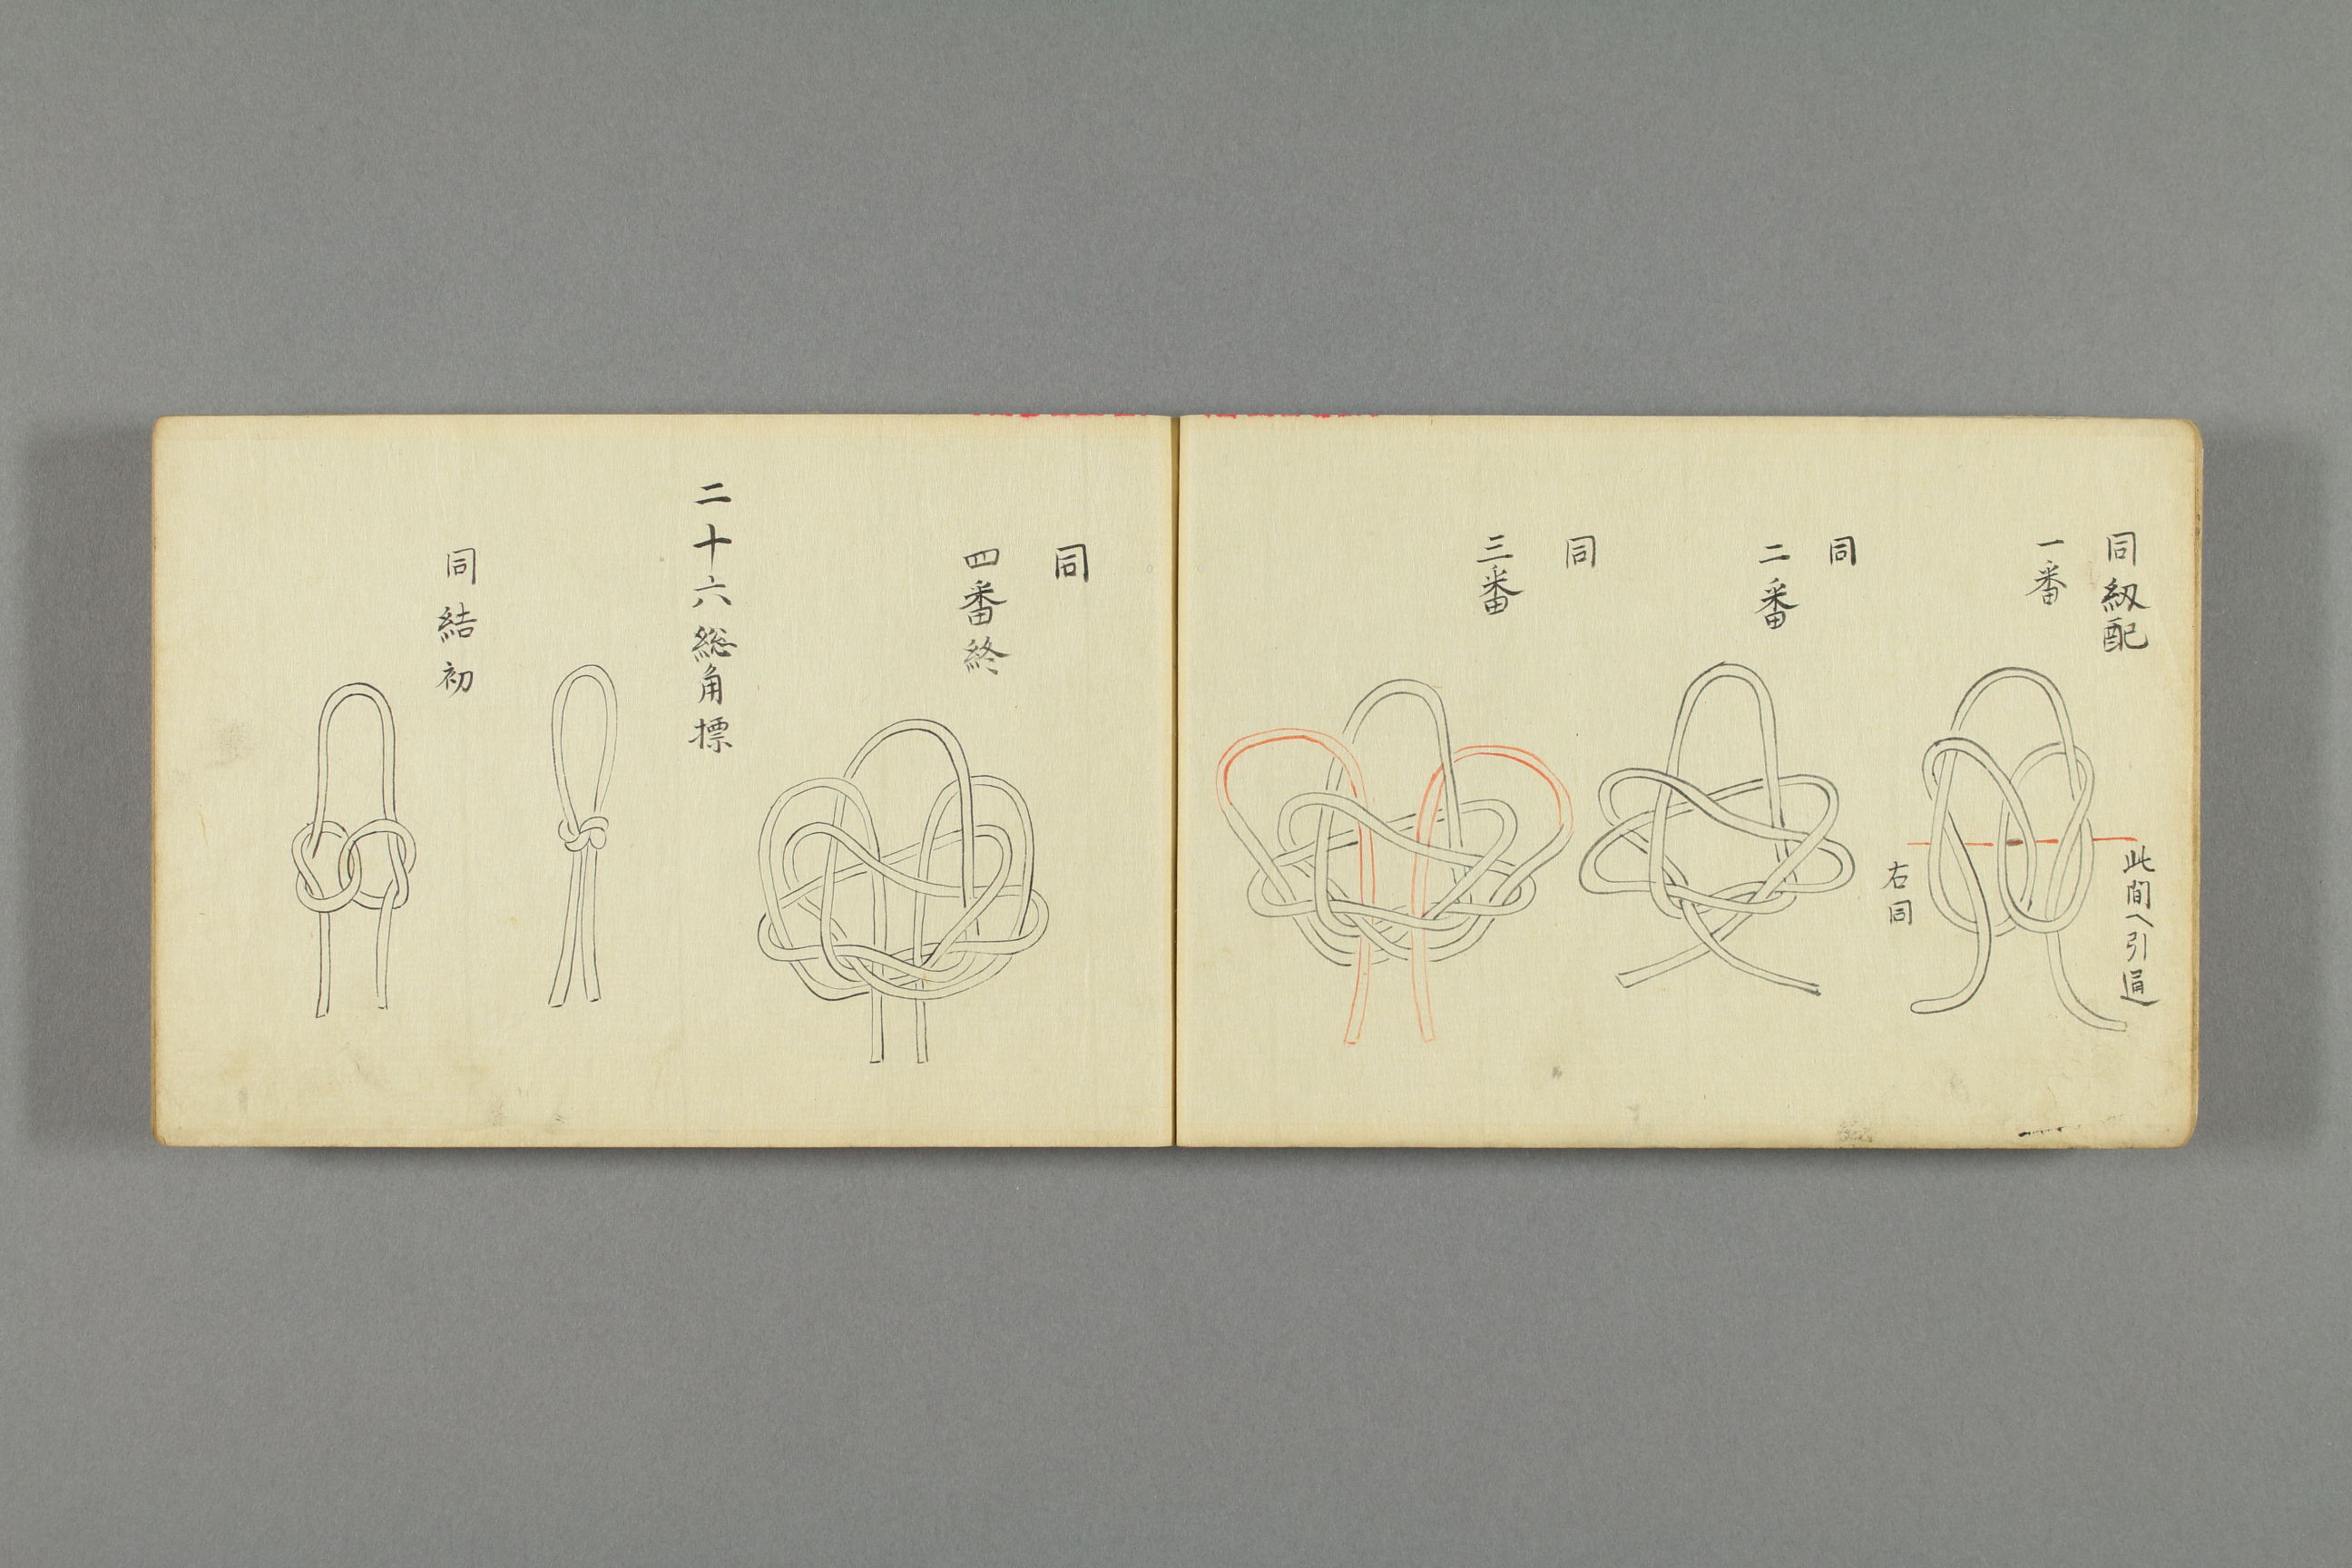 同紐配
一番
此間へ引通
右同
同
二番
同
三番
同
四番終
二十六総角標
同結初